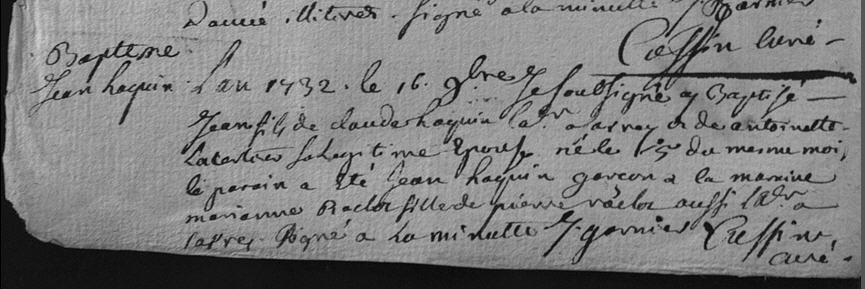 Signé a la minutte J. garnier
Cassin Curé
Baptesme
Jean haquin. L'an 1732. le 16. 9bre Je soussigné ay Baptisé
Jean fils de claude haquin lab.r a & de antoinette
sa Legitime Epouse né le 15 du mesme mois,
le parain a Eté Jean haquin garcon & la maraine
marianne Raclot fille de pierre raclot aussi lab.r a
Signé a La minutte J. garnier Cassin
curé.